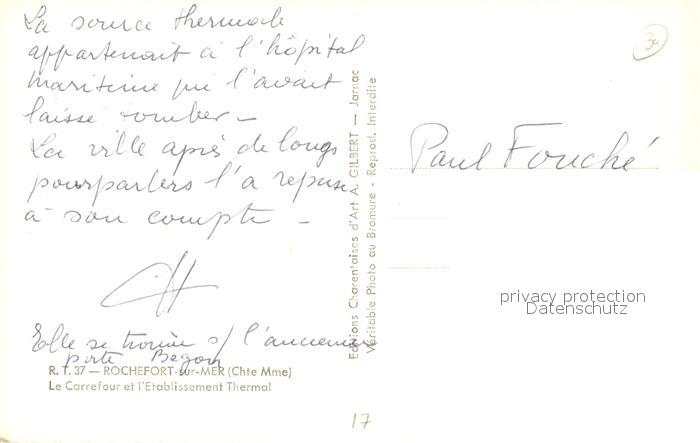 La source thermale
appartenait à l'hôpital
maritime qui l'avait
laissé tomber —
La ville après de longs
pourparlers l'a repuse
à son compte —
Elle se trouve s/ l'ancienne
porte Begon
R. T. 37 — ROCHEFORT-sur-MER (Chte Mme)
Le Carrefour et l'Etablissement Thermal
Editions Charentaises d'Art A. GILBERT — Jarnac
Véritable Photo au Bromure - Reprod. Interdite
30
Paul Fouché
privacy protection
Datenschutz
17